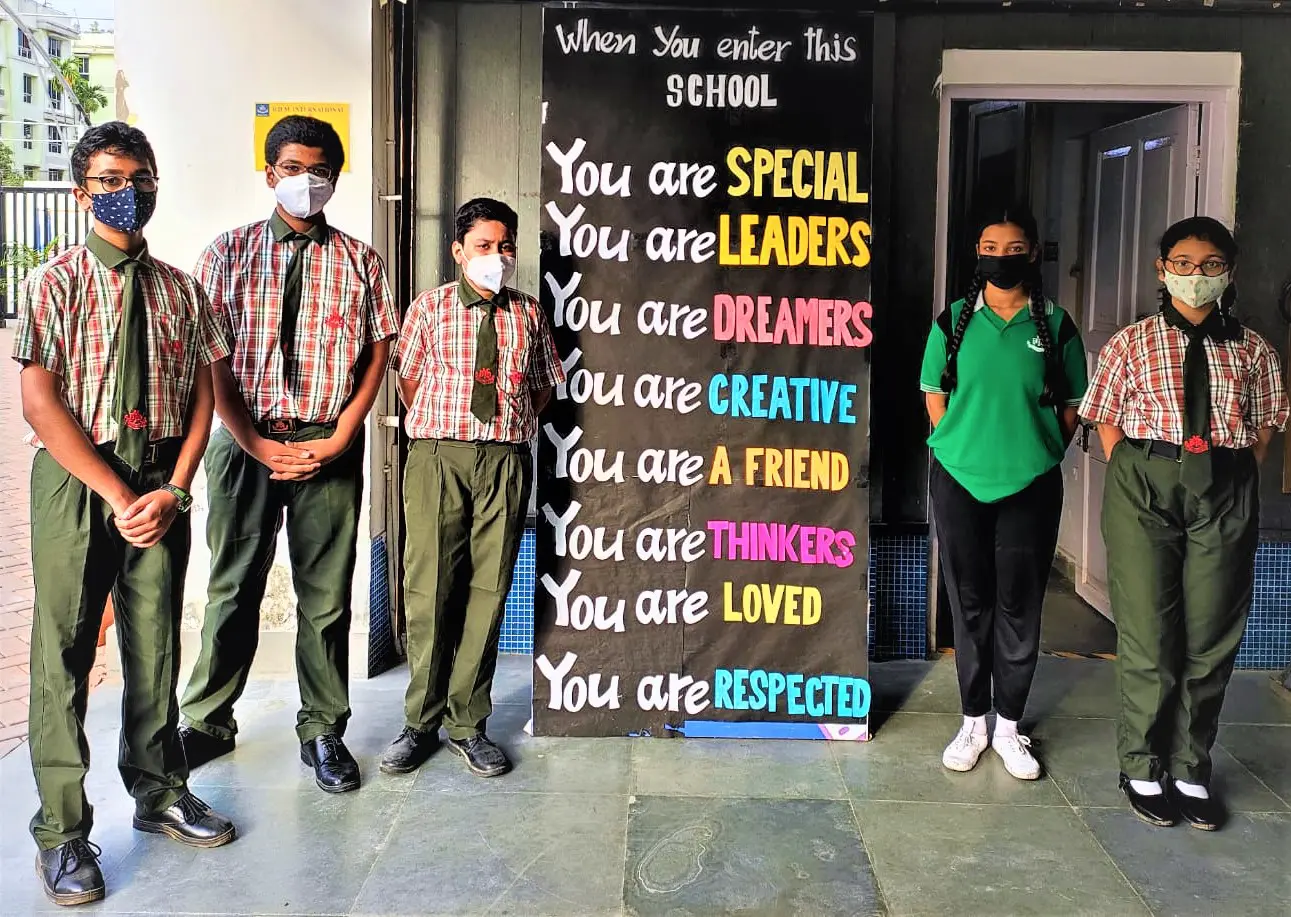 When You enter this
SCHOOL
You are SPECIAL
You are LEADERS
You are DREAMERS
You are CREATIVE
You are A FRIEND
You are THINKERS
You are LOVED
You are RESPECTED
INTERNATIONAL